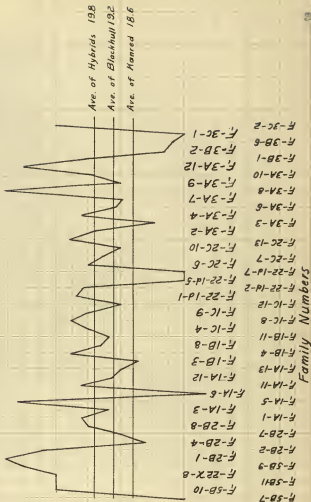 Ave. of Hybrids 19.8
Ave. of Blackhull 19.2
Ave. of Kanred 18.6
F₂-3C-1
F₂-3B-2
F₂-3A-12
F₂-3A-9
F₂-3A-7
F₂-3A-4
F₂-3A-2
F₂-2C-10
F₂-2C-6
F₂-22-1d-5
F₂-22-1d-1
F₂-1C-9
F₂-1C-4
F₂-1B-8
F₂-1B-3
F₂-1A-12
F₂-1A-6
F₂-1A-3
F₂-2B-8
F₂-2B-4
F₂-2B-1
F₂-22X-8
F₂-5B-10
F₂-3C-2
F₂-3B-6
F₂-3B-1
F₂-3A-10
F₂-3A-8
F₂-3A-6
F₂-3A-3
F₂-2C-13
F₂-2C-7
F₂-22-1d-7
F₂-22-1d-2
F₂-1C-12
F₂-1C-8
F₂-1B-11
F₂-1B-4
F₂-1A-13
F₂-1A-11
F₂-1A-5
F₂-1A-1
F₂-2B-7
F₂-2B-2
F₂-5B-9
F₂-5B11
F₂-5B-7
Family Numbers